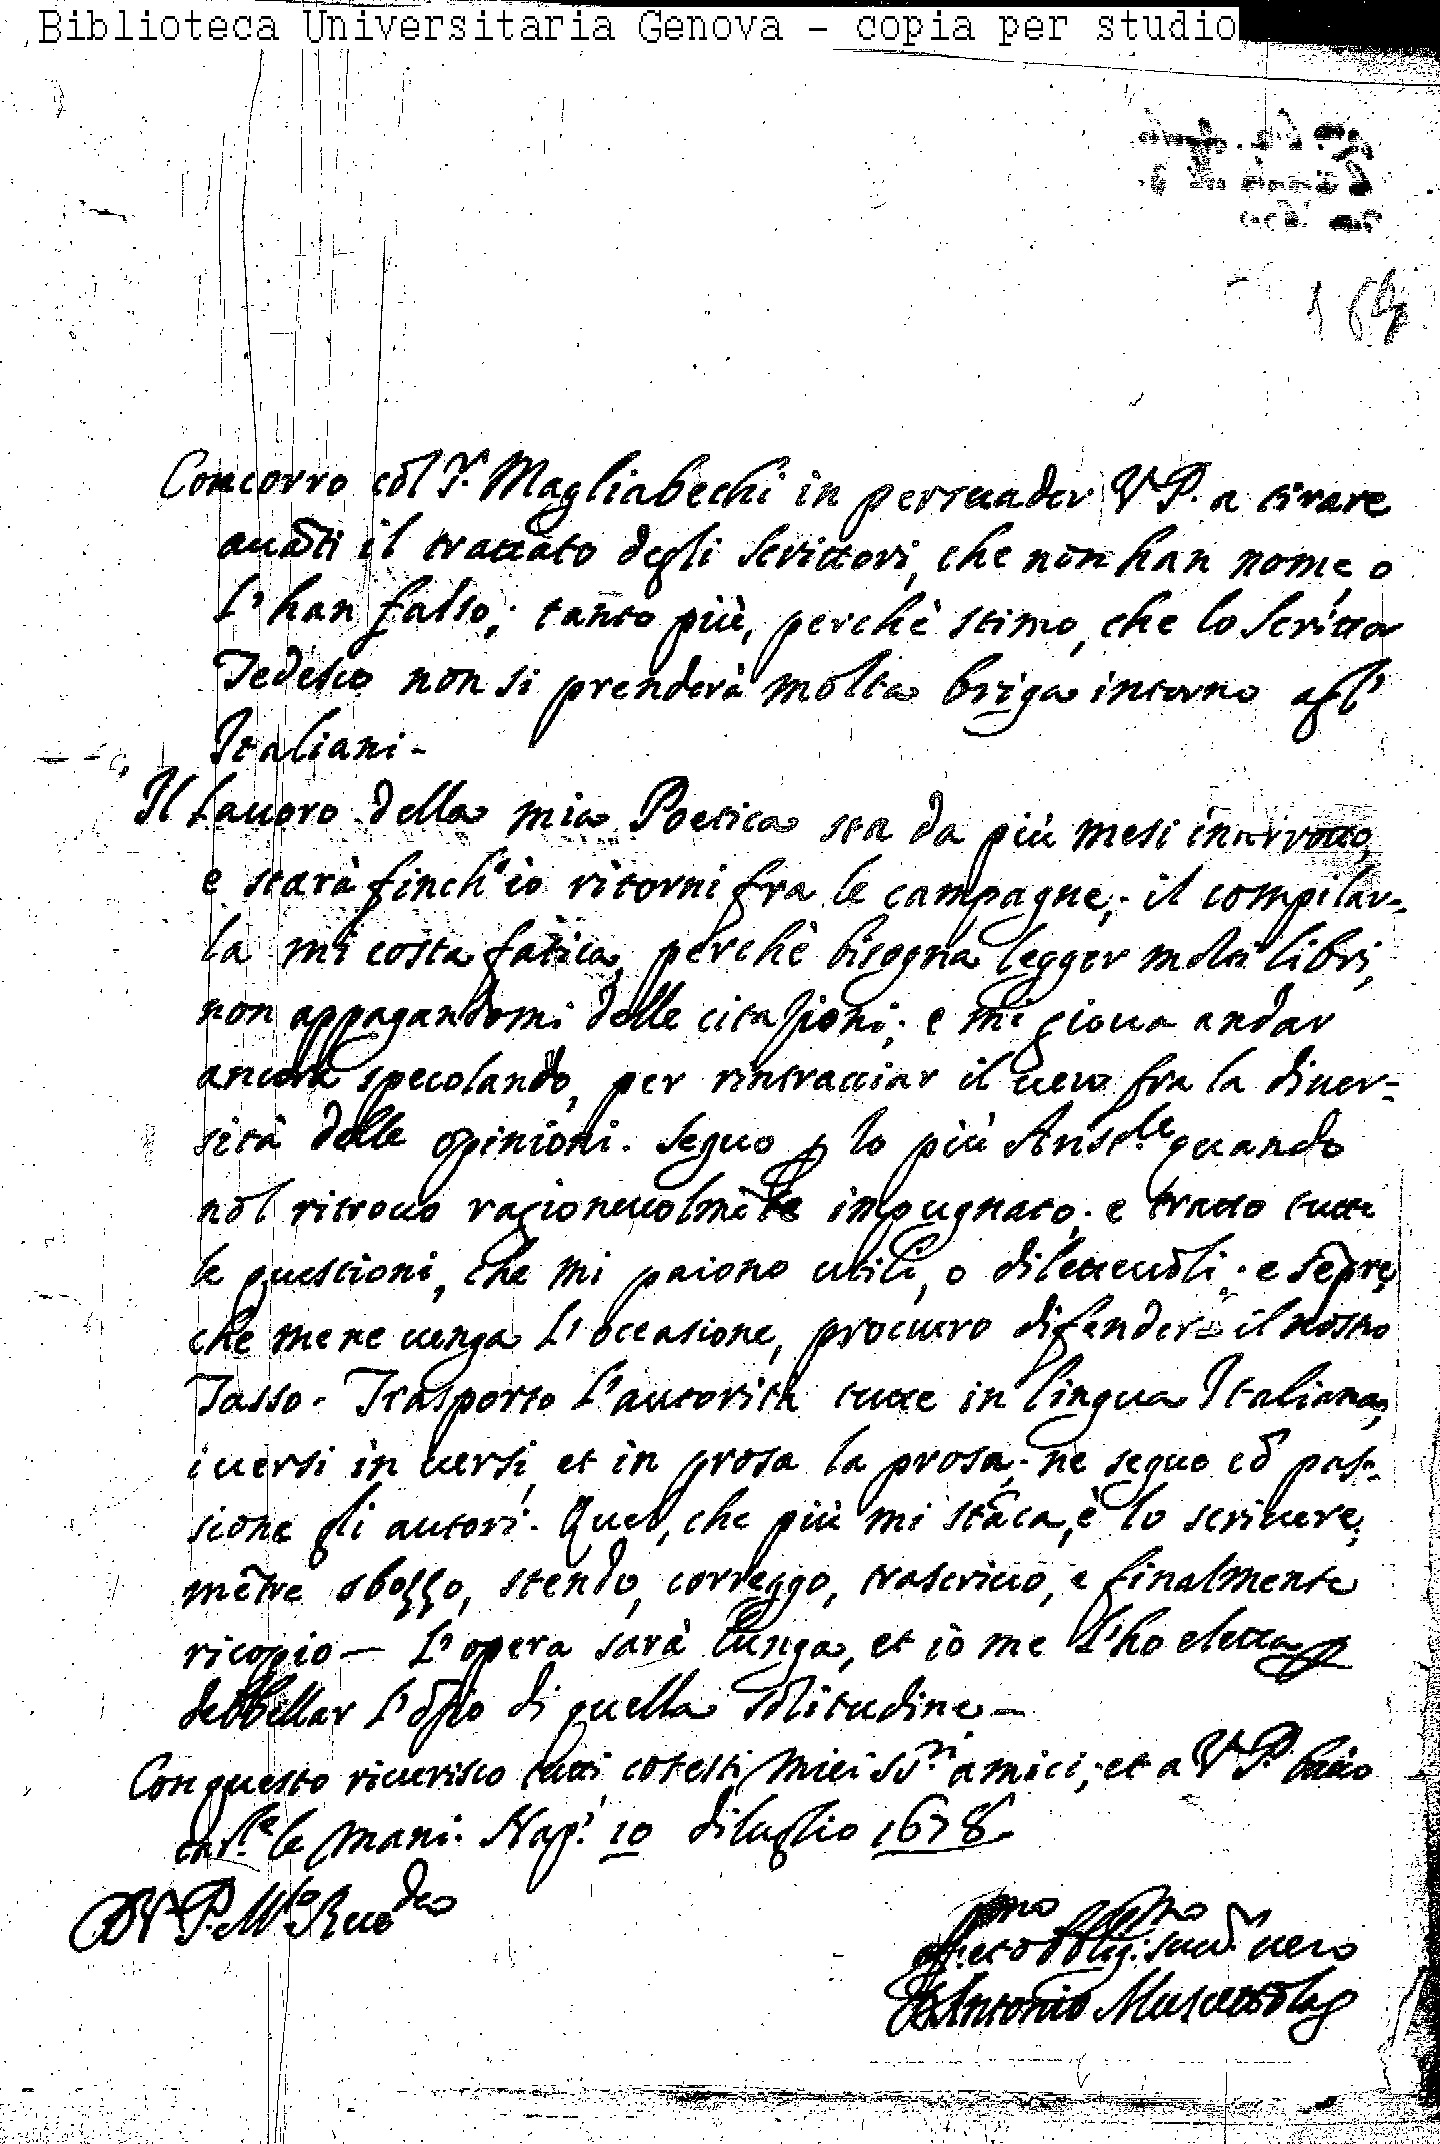 Biblioteca Universitaria Genova - copia per studio
164
Concorro cõl Sr. Magliabechi in persuader V.P. a tirare
auãti il trattato degli Scrittori, che non han nome, o
l'han falso; tanto più, perchè stimo, che lo Scrittor
Tedesco non si prenderà molta briga intorno agl'
Italiani.
Il lauoro della mia Poetica sta da più mesi interrotto,
e starà finch'io ritorni fra le campagne; il compilar-
la mi costa fatica, perchè bisogna legger molti libri,
non appagandomi delle citazioni; e mi gioua andar
ancora specolando, per rintracciar il uero fra la diuer-
sità delle opinioni. Seguo p lo più Aristle quando
nol ritrouo ragioneuolmẽte impugnato; e tratto tutte
le questioni, che mi paiono utili, o diletteuoli; e sẽpre,
che me ne uenga l'occasione, procuro difender il nostro
Tasso. Trasporto l'autorità tutte in lingua Italiana,
i uersi in uersi, et in prosa la prosa; ne seguo cõ pas-
sione gli autori. Quel, che più mi stãca, è lo scriuere,
mẽtre sbozzo, stendo, correggo, trascriuo, e finalmente
ricopio — L'opera sarà lunga, et io me l'ho eletta p
debbellar l'ozio di quella solitudine —
Con questo riuerisco tutti cotesti miei SSri amici; et a V.P. bacio
le mani. Nap. 10 di luglio 1678.
Di V.P. M.to Reuda
Antonio Muscettola